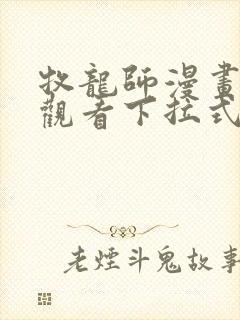 牧龍師漫畫
觀看下拉式
老煙斗鬼故事